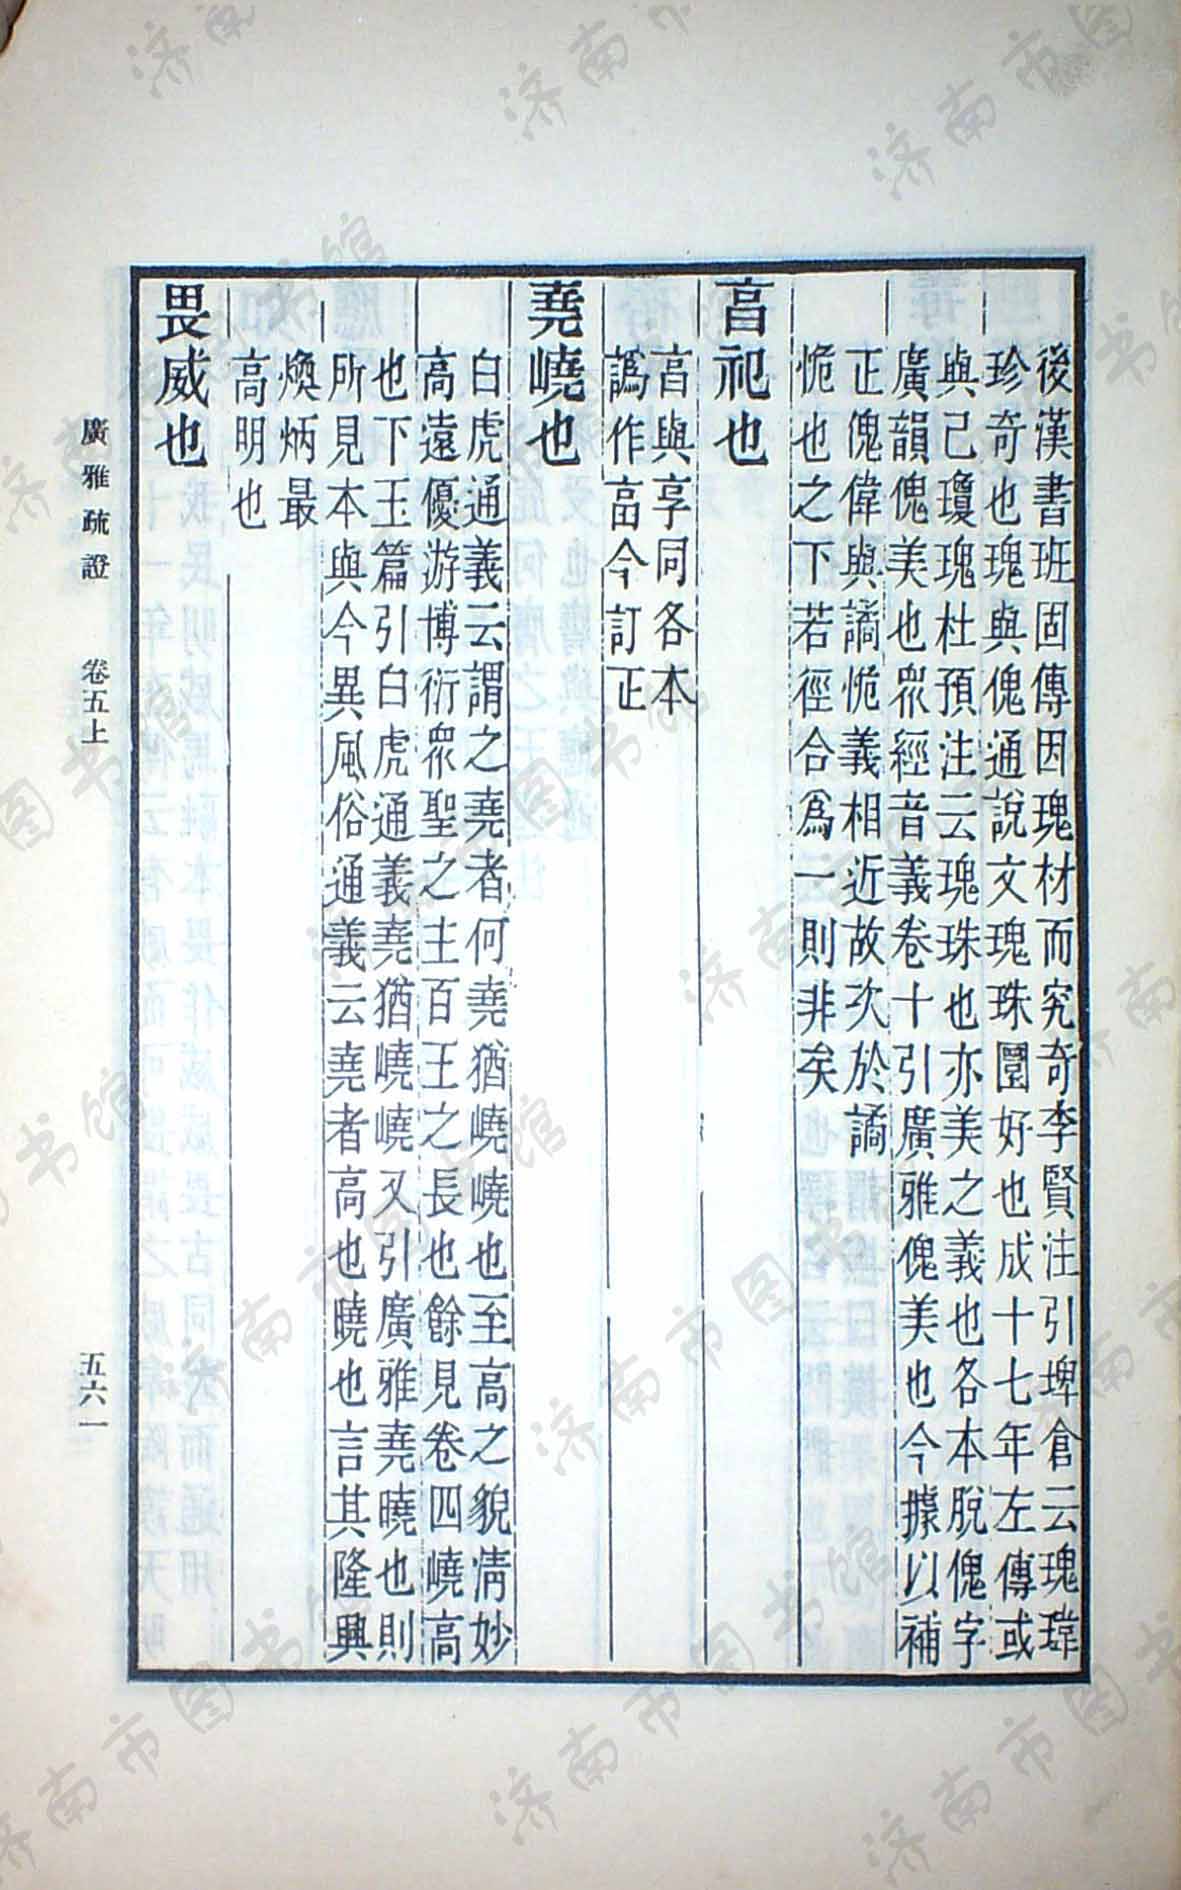 後漢書班固傳因瑰材而究奇李賢注引埤倉云瑰瑋
珍奇也瑰與傀通說文瑰珠圜好也成十七年左傳或
與己瓊瑰杜預注云瑰珠也亦美之義也各本脫傀字
廣韻傀美也眾經音義卷十引廣雅傀美也今據以補
正傀偉與譎恑義相近故次於譎
恑也之下若徑合爲一則非矣
亯祀也
亯與享同各本
譌作畗今訂正
堯嶢也
白虎通義云謂之堯者何堯猶嶢嶢也至高之貌淸妙
高遠優游博衍眾聖之主百王之長也餘見卷四嶢高
也下玉篇引白虎通義堯猶嶢嶢又引廣雅堯曉也則
所見本與今異風俗通義云堯者高也曉也言其隆興
煥炳最
高明也
畏威也
廣雅疏證 卷五上 五六一
济南市图书馆